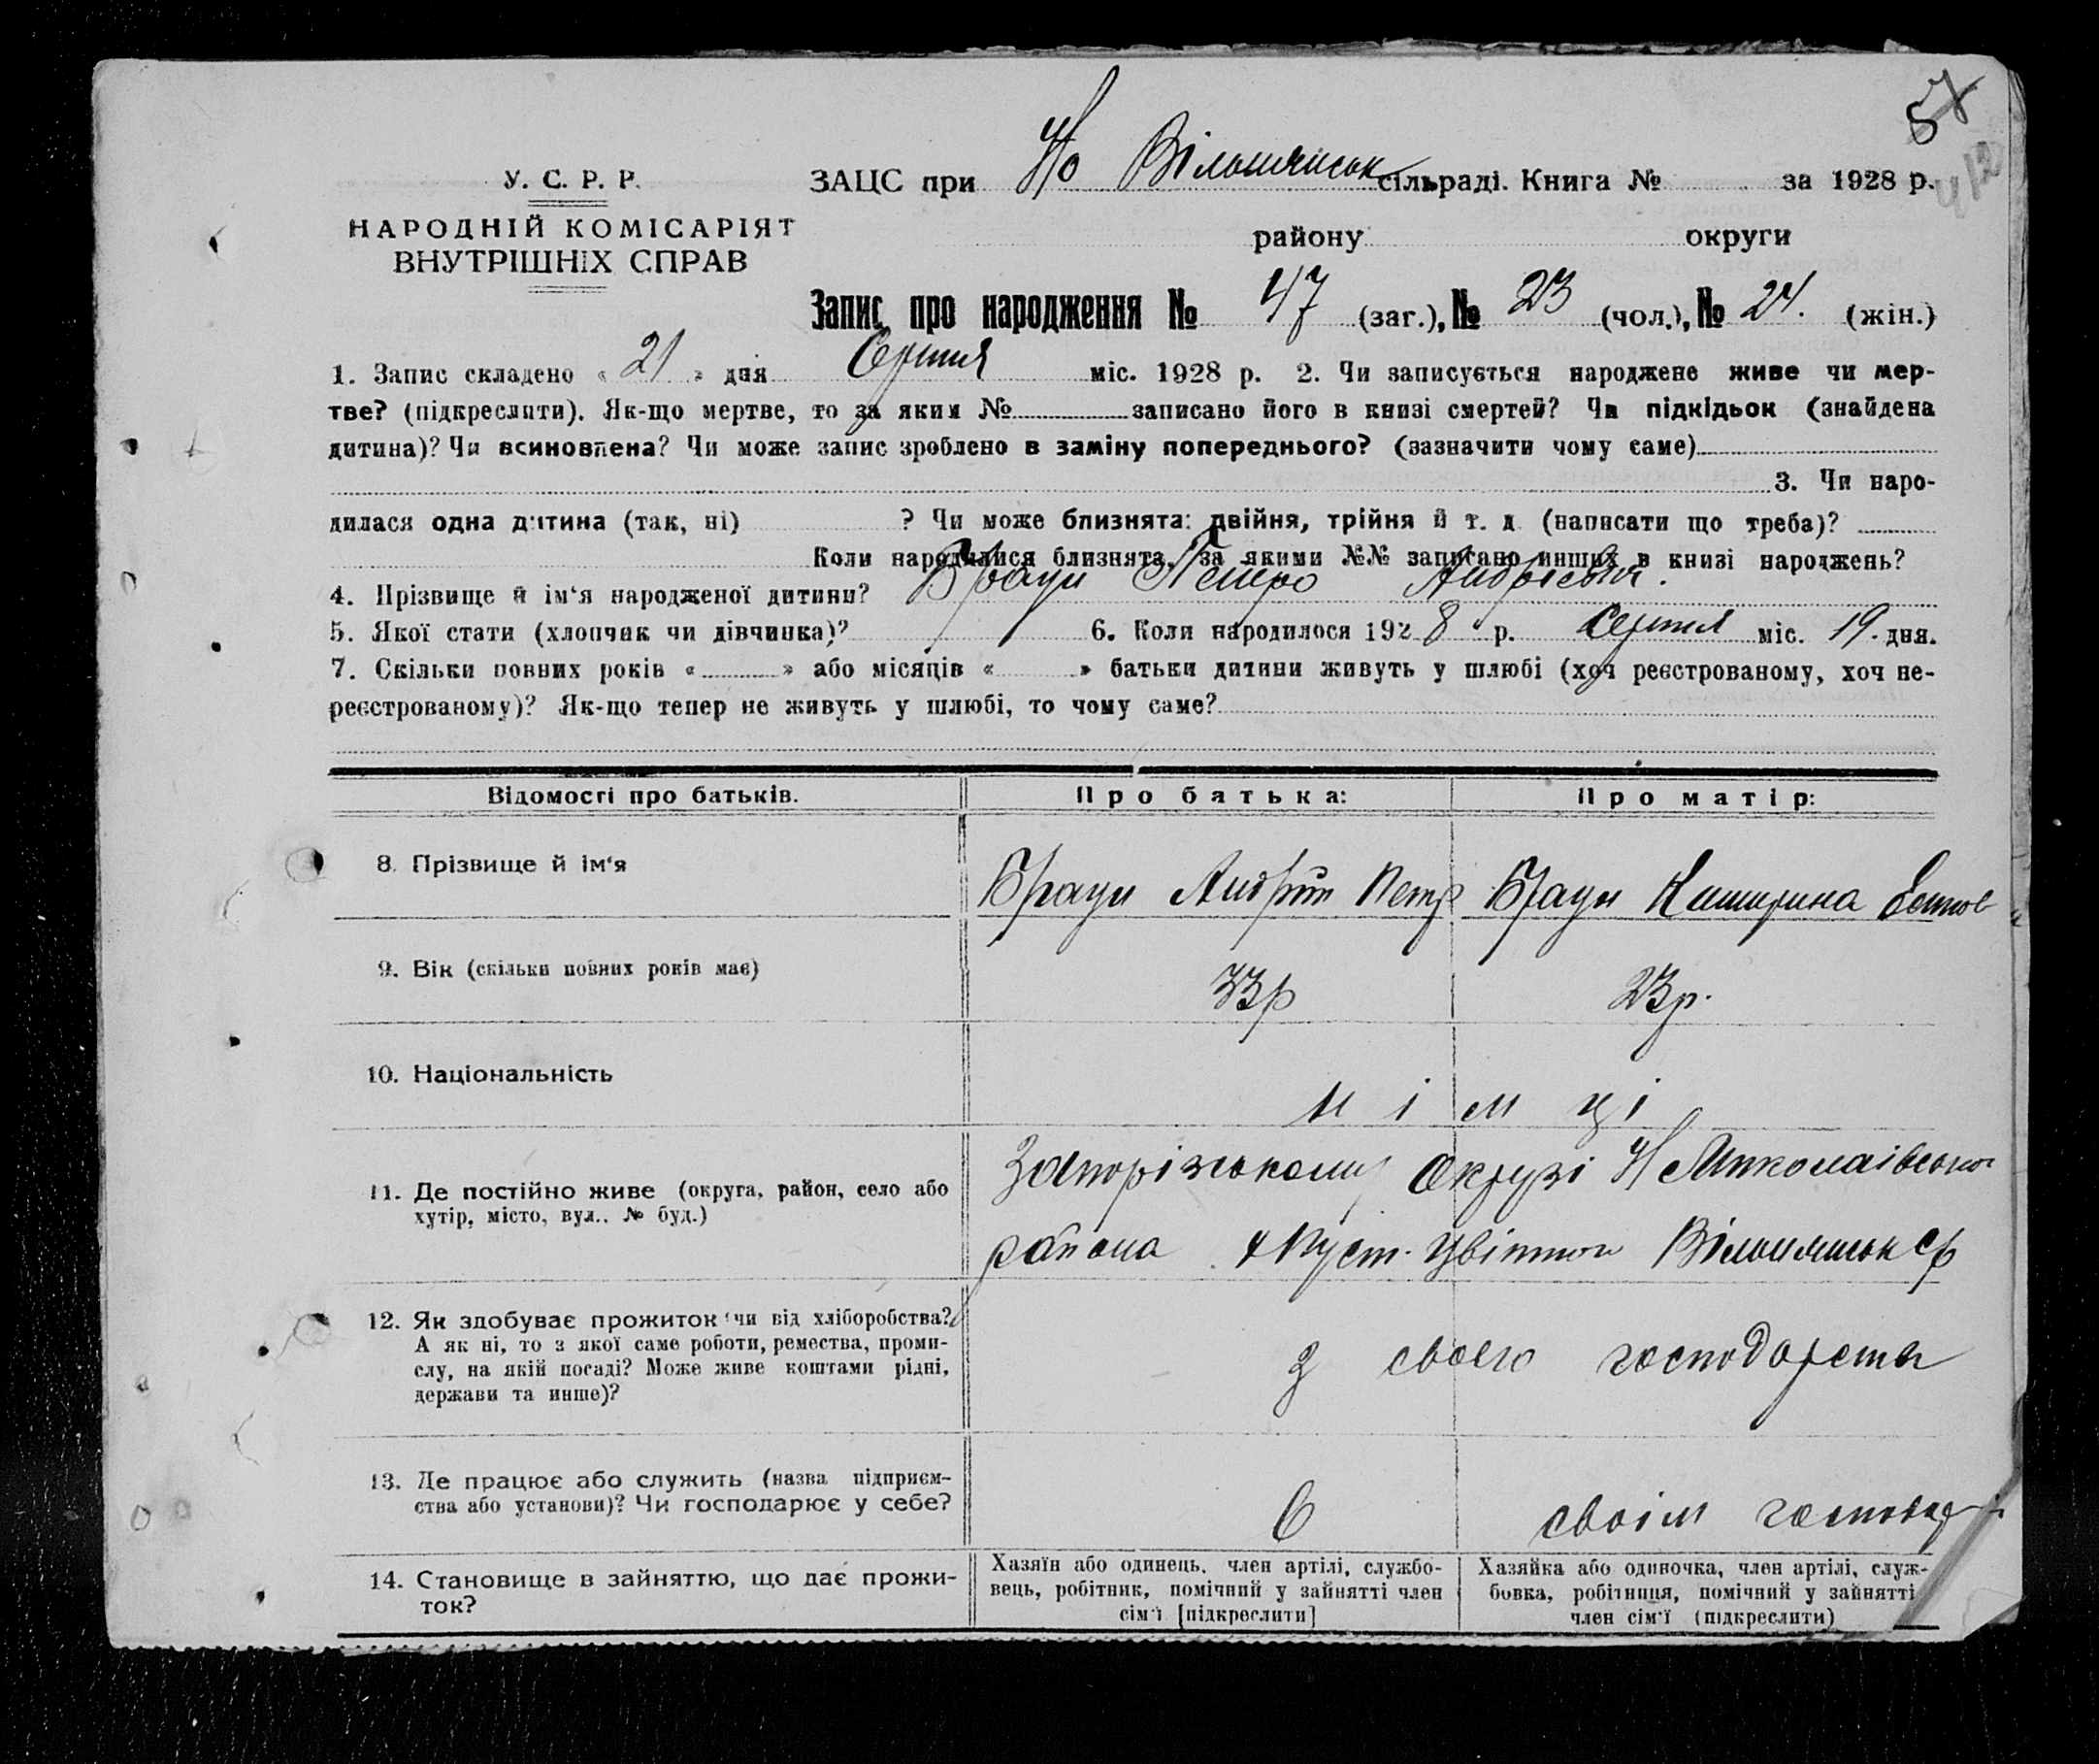 57
У. С. Р. Р.
НАРОДНІЙ КОМІСАРІЯТ
ВНУТРІШНІХ СПРАВ
ЗАЦС при Но Вільшянськ сільраді. Книга № за 1928 р.
району округи
Запис про народження № 47 (заг.), № 23 (чол.), № 24. (жін.)
1. Запис складено « 21 » дня Серпня міс. 1928 р. 2. Чи записується народжене живе чи мер-
тве? (підкреслити). Як-що мертве, то за яким № записано його в книзі смертей? Чи підкідьок (знайдена
дитина)? Чи всиновлена? Чи може запис зроблено в заміну попереднього? (зазначити чому саме)
3. Чи наро-
дилася одна дитина (так, ні) ? Чи може близнята: двійня, трійня й т. д (написати що треба)?
Коли народилися близнята, за якими №№ записано инших в книзі народжень?
4. Прізвище й ім‘я народженої дитини? Браун Петро Андрієвич.
5. Якої стати (хлопчик чи дівчинка)? 6. Коли народилося 1928 р. Серпня міс. 19. дня.
7. Скільки повних років « » або місяців « » батьки дитини живуть у шлюбі (хоч реєстрованому, хоч не-
реєстрованому)? Як-що тепер не живуть у шлюбі, то чому саме?
Відомості про батьків. Про батька: Про матір:
8. Прізвище й ім‘я Браун Андрій Петр Браун Катерина
9. Вік (скільки повних років має) 33р 23р.
10. Національність німці
11. Де постійно живе (округа, район, село або
хутір, місто, вул.. № буд.)
Запорізькому Окрузі Н Миколаівського
района Цвіткова Вільшянськ ср
12. Як здобуває прожиток чи від хліборобства?
А як ні, то з якої саме роботи, ремества, проми-
слу, на якій посаді? Може живе коштами рідні,
держави та инше)?
з своего господарства
13. Де працює або служить (назва підприєм-
ства або установи)? Чи господарює у себе?
в своім господар
14. Становище в зайняттю, що дає прожи-
ток?
Хазяїн або одинець, член артілі, службо-
вець, робітник, помічний у зайнятті член
сім‘ї [підкреслити]
Хазяйка або одиночка, член артілі, служ-
бовка, робітниця, помічний у зайнятті
член сім‘ї (підкреслити)